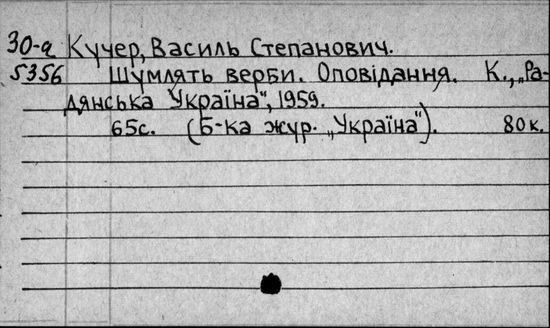 30-а Кучер, Василь Степанович.
5356 Шумлять верби. Оповідання. К., „Ра-
дянська Україна“, 1959.
65с. (Б-ка жур. „Україна“). 80к.